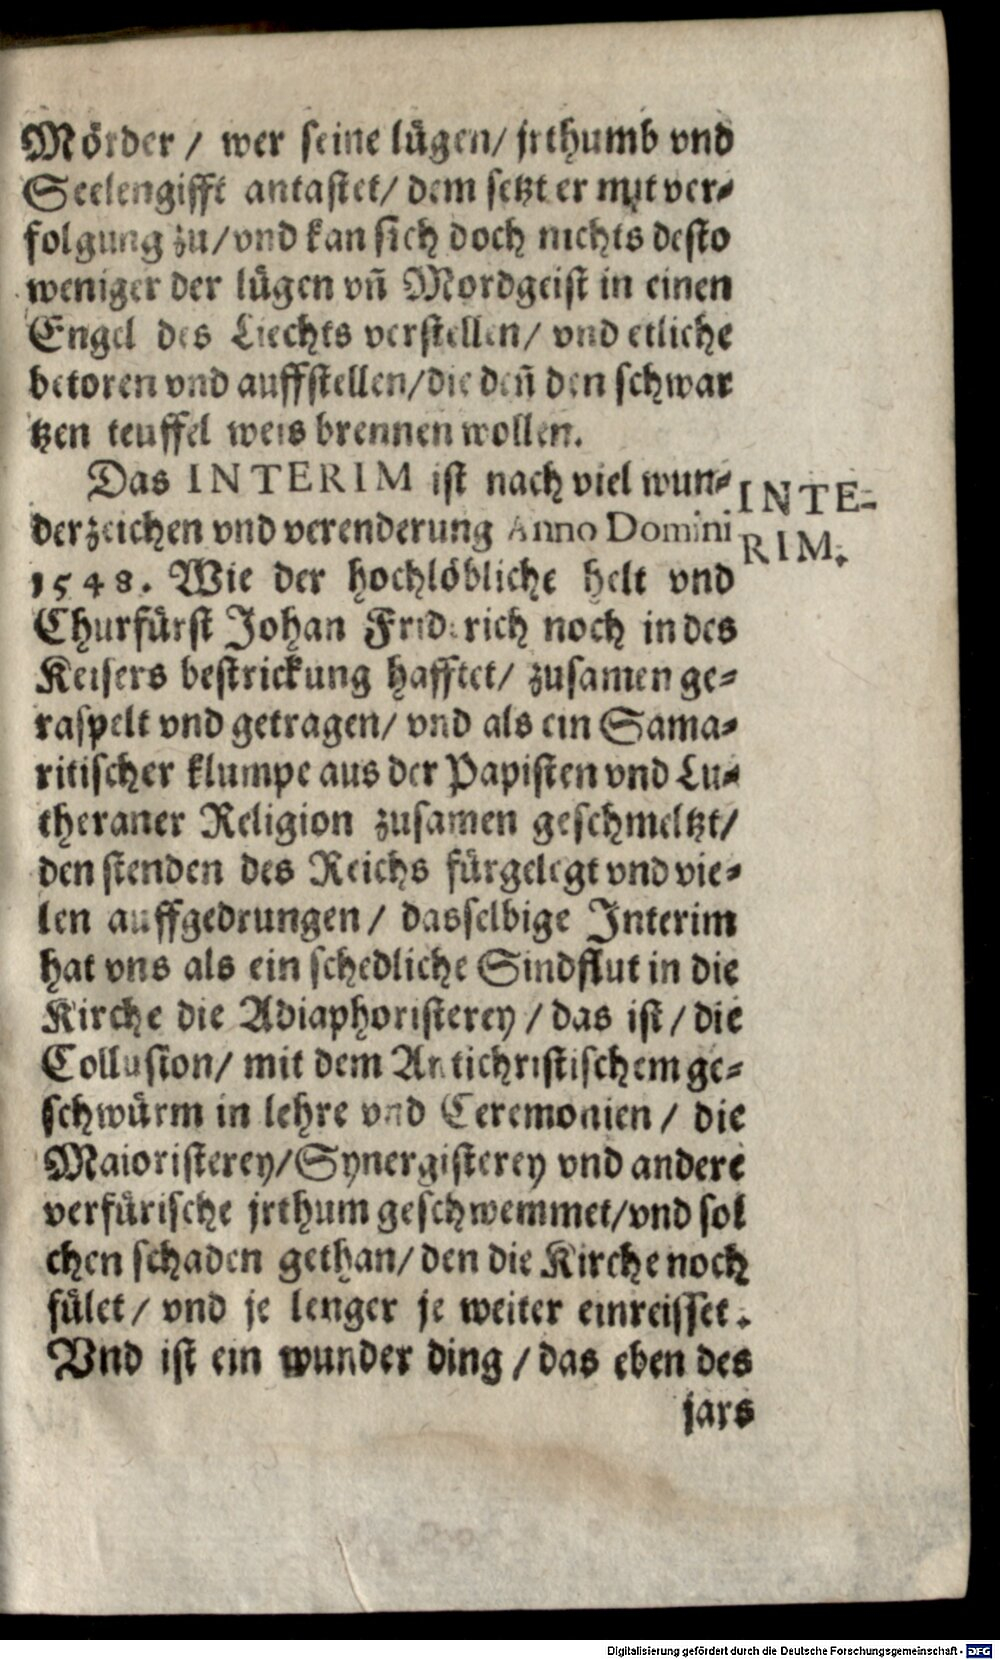 Mörder / wer seine lügen/ jrthumb vnd
Seelengifft antastet/ dem setzt er mit ver-
folgung zu/ vnd kan sich doch nichts desto
weniger der lügen vñ Mordgeist in einen
Engel des Liechts verstellen/ vnd etliche
betoren vnd auffstellen/ die deñ den schwar
tzen teuffel weis brennen wollen.
Das INTERIM ist nach viel wun-
INTE-
RIM.
derzeichen vnd verenderung Anno Domini
1548. Wie der hochlöbliche helt vnd
Churfürst Johan Friderich noch in des
Keisers bestrickung hafftet/ zusamen ge-
raspelt vnd getragen/ vnd als ein Sama-
ritischer klumpe aus der Papisten vnd Lu-
theraner Religion zusamen geschmeltzt/
den stenden des Reichs fürgelegt vnd vie-
len auffgedrungen / dasselbige Interim
hat vns als ein schedliche Sindflut in die
Kirche die Adiaphoristerey / das ist / die
Collusion/ mit dem Antichristischem ge-
schwürm in lehre vnd Ceremonien / die
Maioristerey/ Synergisterey vnd andere
verfürische jrthum geschwemmet/ vnd sol
chen schaden gethan/ den die Kirche noch
fület / vnd je lenger je weiter einreisset.
Vnd ist ein wunder ding / das eben des
jars
Digitalisierung gefördert durch die Deutsche Forschungsgemeinschaft - DFG